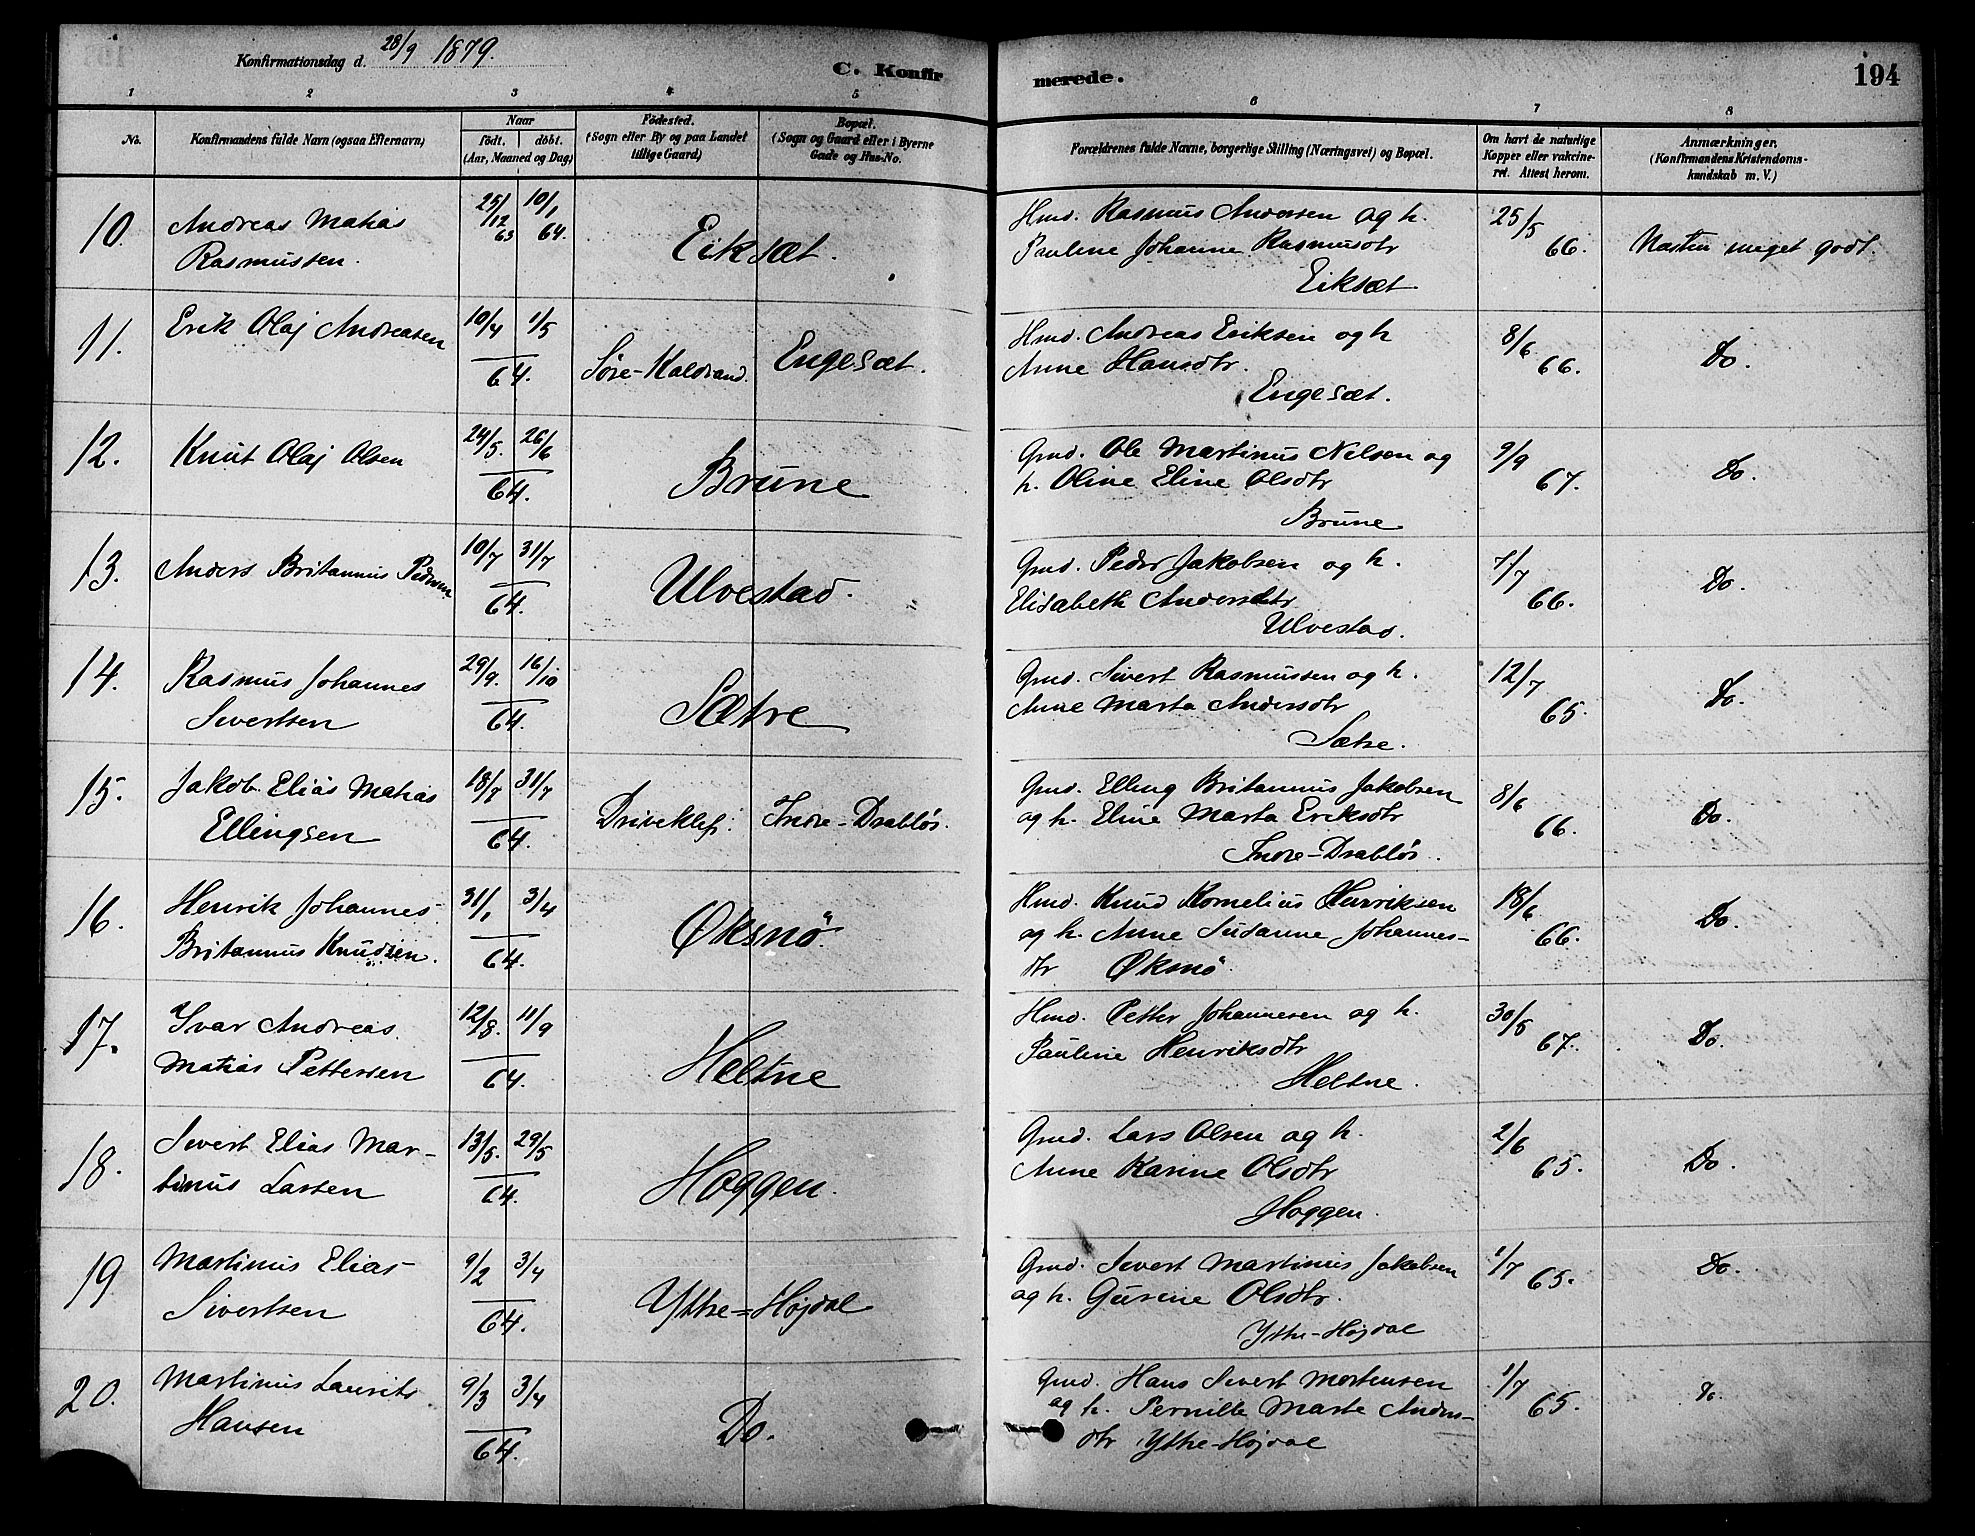 Konfirmationsdag d. 28/9 1879.
C. Konfirmerede.
194
1 2 3 4 5 6 7 8
No.
Konfirmandens fulde Navn (ogsaa Efternavn)
Naar
födt. döbt.
(Aar, Maaned og Dag)
Födested.
(Sogn eller By og paa Landet
tillige Gaard)
Bopæl.
(Sogn og Gaard eller i Byerne
Gade og Hus-No.
Forældrenes fulde Navne, borgerlige Stilling (Næringsvei) og Bopæl.
Om havt de naturlige
Kopper eller vakcineret. Attest herom.
Anmærkninger.
(Konfirmandens Kristendomskundskab m. V.)
10. Andreas Matias
Rasmussen.
25/12 63 10/1 64.
Eiksæt.
Hmd. Rasmus Andersen og h.
Pauline Johanne Rasmusdtr
Eiksæt
25/5 66.
Næsten meget godt.
11. Erik Olaj Andreasen
10/4 1/5
64.
Søre-Kaldvand. Engesæt.
Hmd. Andreas Eriksen og h
Anne Hansdtr.
Engesæt.
8/6 66.
Do.
12. Knut Olaj Olsen
24/5. 26/6
64.
Brune
Gmd. Ole Martinus Nelsen og
h. Oline Eline Olsdtr
Brune
9/9 67.
Do.
13. Anders Britannus Pedersen
10/7 31/7
64.
Ulvestad.
Gmd. Peder Jakobsen og h.
Elisabeth Andersdtr
Ulvestad.
7/7 66.
Do.
14. Rasmus Johannes
Sivertsen
29/9. 16/10
64.
Sætre
Gmd. Sivert Rasmussen og h.
Anne Marta Andersdtr
Sætre.
12/7 65.
Do.
15. Jakob Elias Matias
Ellingsen
18/7 31/7
64.
Indre-Drabløs.
Gmd. Elling Britannus Jakobsen
og h. Eline Marta Eriksdtr
Indre-Drabløs.
8/6 66.
Do.
16. Henrik Johannes
Britannus Knudsen.
31/1 3/4
64.
Øksnø.
Hmd. Knud Kornelius Henriksen
og h. Anne Susanne Johannes-
dtr Øksnø.
18/6 66.
Do.
17. Ivar Andreas
Matias Pettersen
12/8. 11/9
64.
Heltne
Hmd. Petter Johannesen og h.
Pauline Henriksdtr
Heltne.
30/5 67.
Do.
18. Sivert Elias Mar-
tinus Larsen
13/5. 29/5
64.
Haggen.
Gmd. Lars Olsen og h.
Anne Karine Olsdtr
Haggen.
2/6 65.
Do.
19 Martinus Elias
Sivertsen
9/2 3/4
64.
Ytre-Højdal
Gmd. Sivert Martinus Jakobsen
og h. Gurine Olsdtr.
Ytre-Højdal
1/7 65.
Do.
20. Martinus Laurits
Hansen
9/3 3/4
64.
Do.
Gmd. Hans Sivert Mortensen
og h. Pernille Marte Anders-
dtr Ytre-Højdal
1/7 65.
Do.